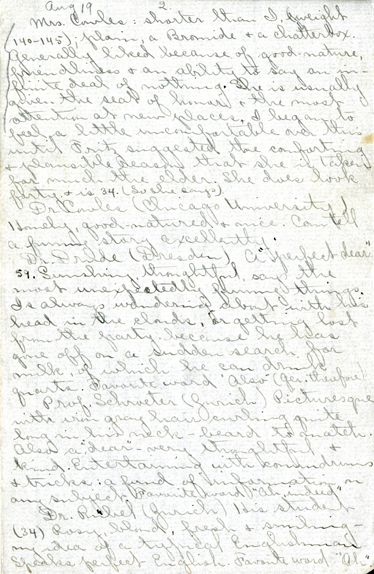 Aug 19 2.
Mrs. Cowles: shorter than I, (weight
140-145); plain, a Bromide & a chatterbox.
Generally liked because of good-nature,
friendliness & an ability to say an in-
finite deal of nothing. She is usually
given the seat of honor & the most
attention at new places. I began to
feel a little uncomfortable over this
until Fritz suggested the comforting
& plausible reason that she is taken
for much the elder. She does look
forty & is 34. (So she says)
Dr. Cowles (Chicago University)
Homely, good-natured & nice. Can tell
a funny story excellently.
Dr. Drude (Dresden). A "perfect dear"
59. Sunshiny, thoughtful, says the
most unexpectedly funny things.
Is always wandering about with his
head in the clouds, or getting lost
from the party because he has
gone off on a sudden search for
milk, of which he can drink
quarts. Favorite word "Also" (Ger. therefore)
Prof. Schroeter (Zurich) Picturesque
with iron gray hair curling quite
long in his neck - beard to match.
Also a "dear" - very thoughtful &
kind. Entertaining with conundrums
& tricks: a fund of information on
any subject. Favorite word "Ah, indeed"
Dr. Rübel (Zurich) His student
(34) Rosy, blond, fresh & smiling -
my idea of a typical Englishman
Speaks perfect English. Favorite word "Ah"